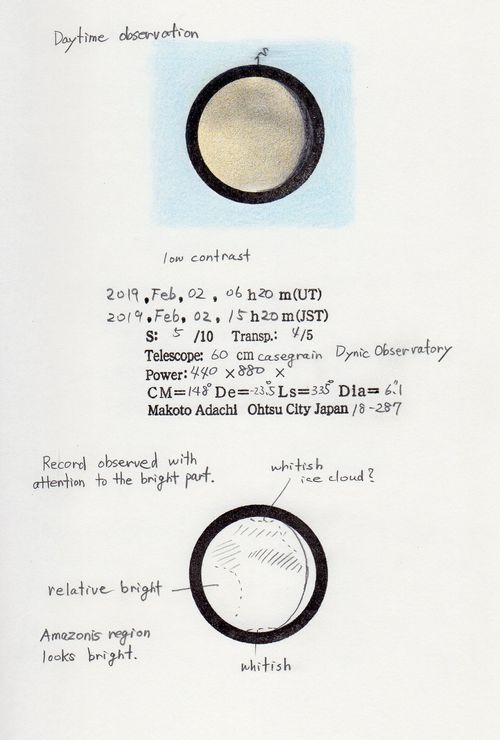 Daytime observation
S
low contrast
2019, Feb, 02, 06 h 20 m (UT)
2019, Feb, 02, 15 h 20 m (JST)
S: 5 /10 Transp.: 4/5
Telescope: 60 cm casegrain Dynic Observatory
Power: 440 × 880 ×
CM=148° De=-23.5° Ls=335° Dia= 6.″1
Makoto Adachi Ohtsu City Japan 18-287
Record observed with
attention to the bright part.
whitish
ice cloud?
relative bright
Amazonis region
looks bright.
whitish